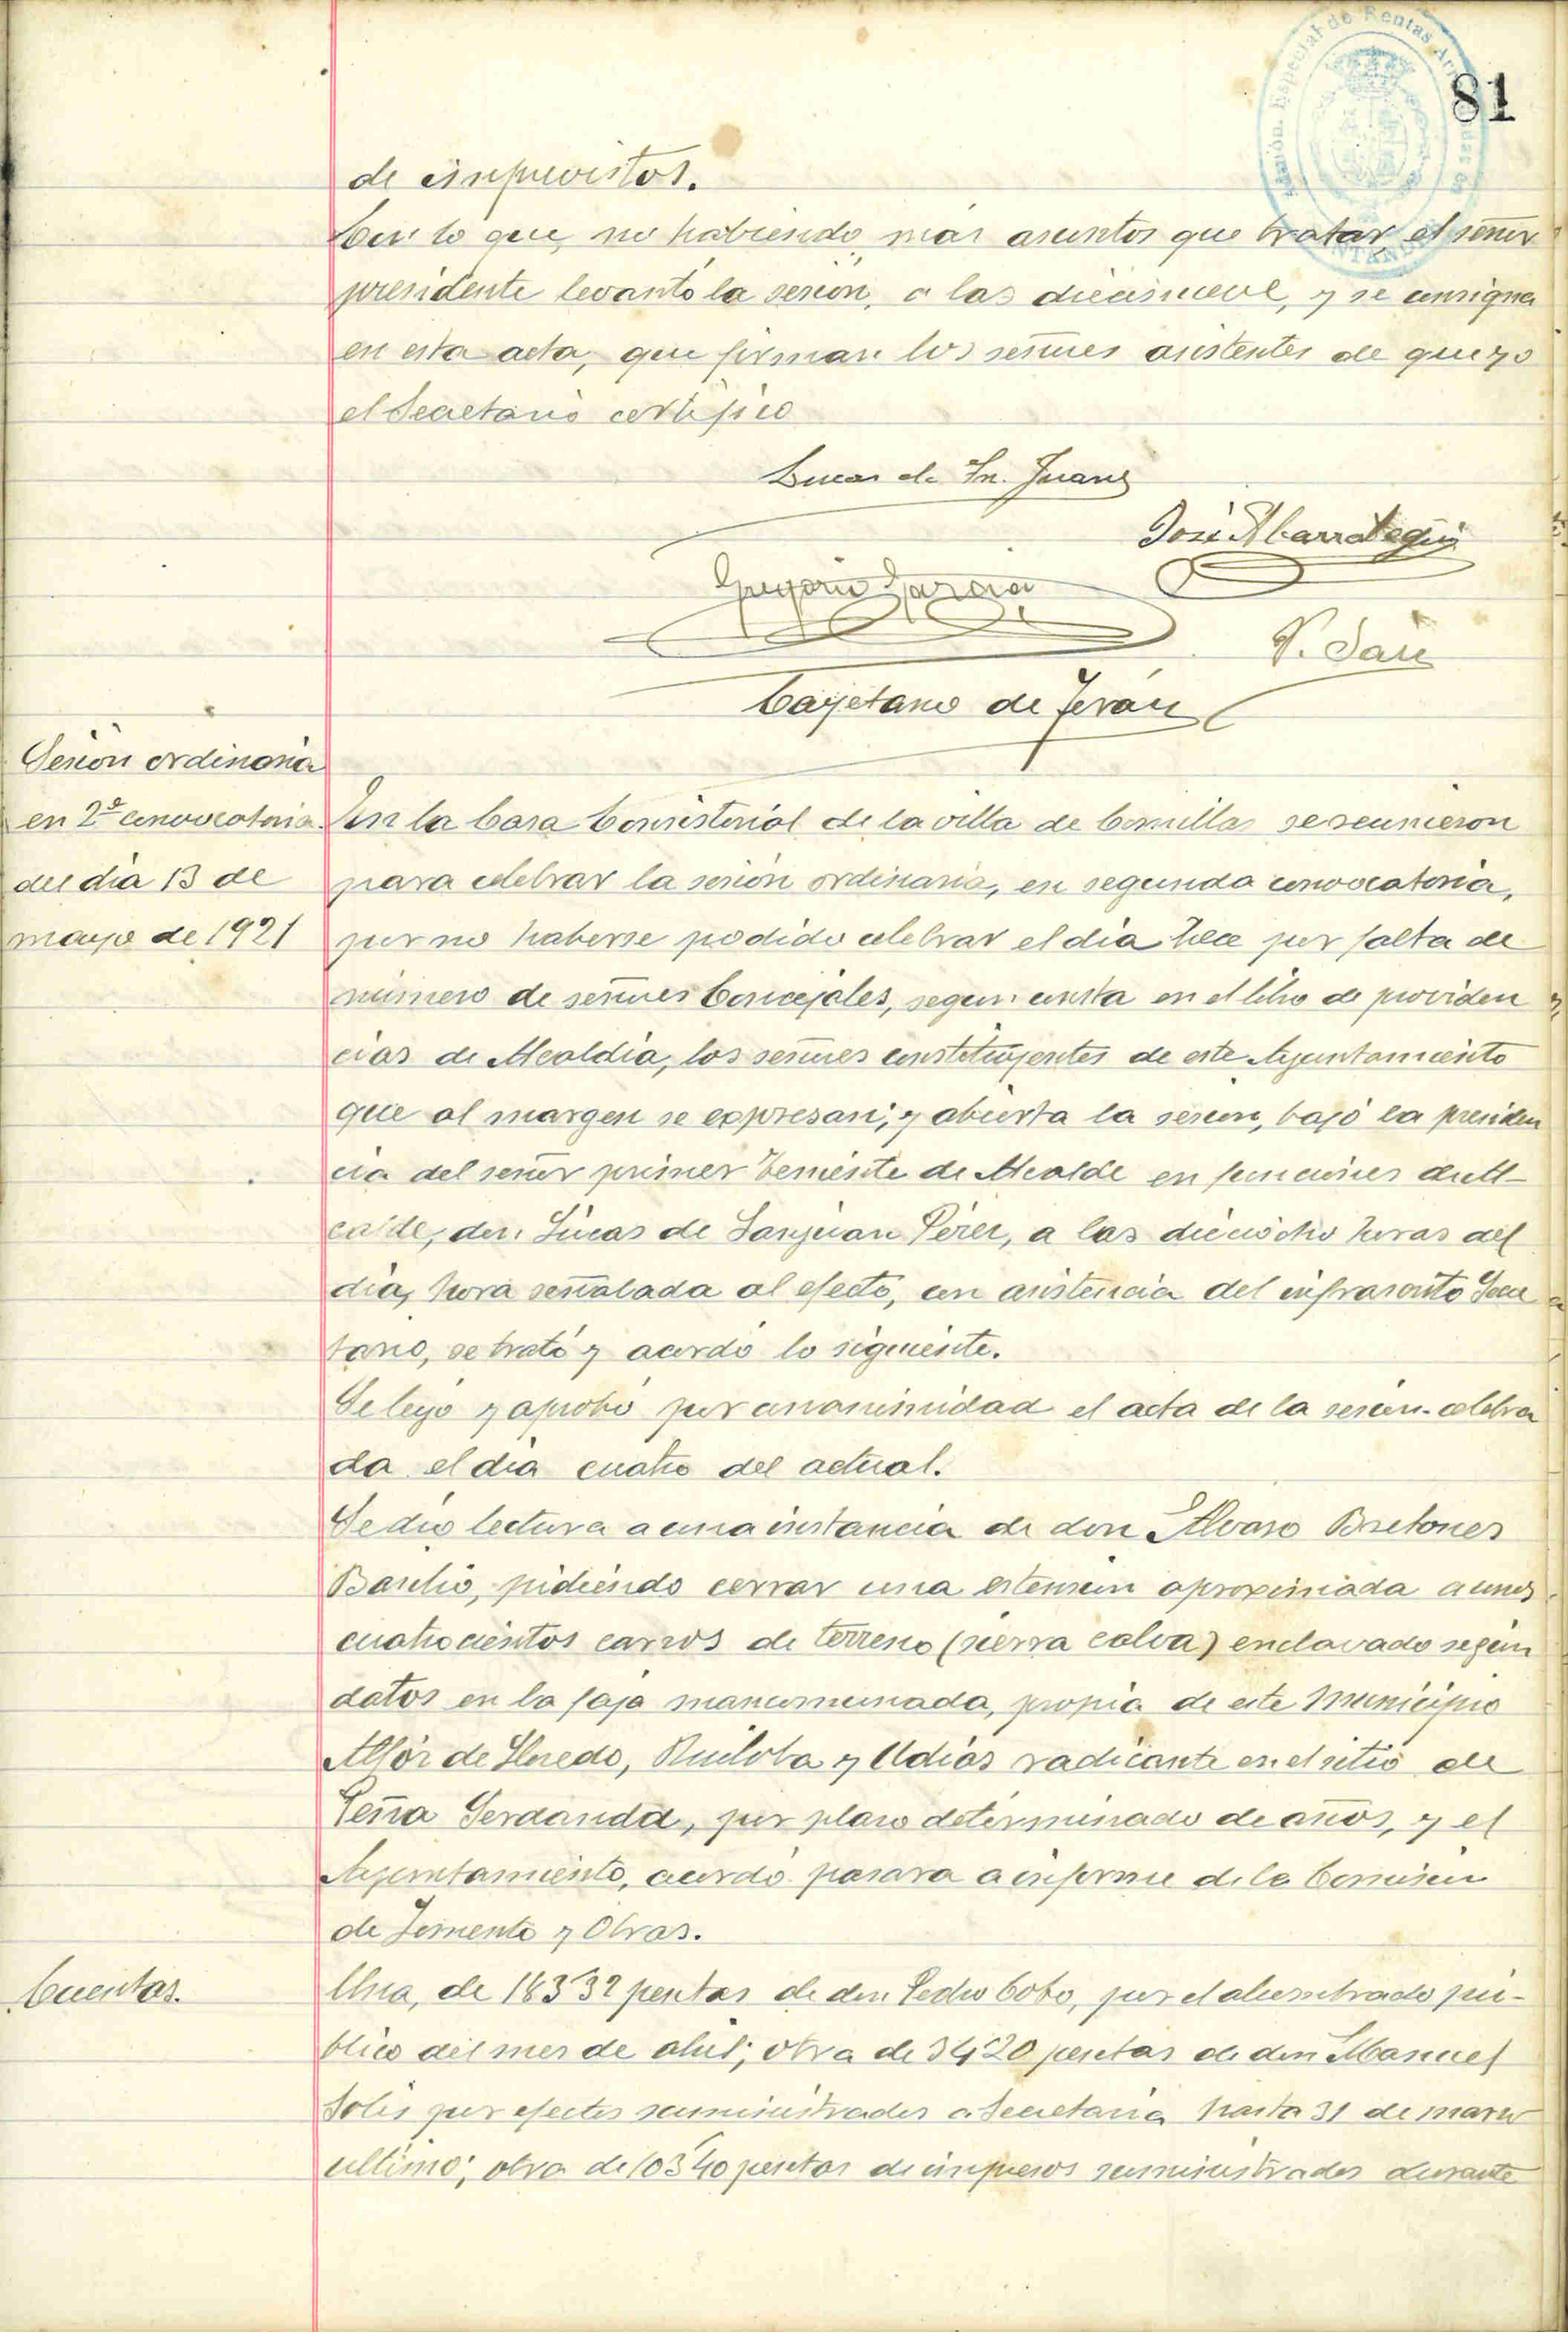 81
de imprevistos.
Con lo que, no habiendo mas asuntos que tratar, el señor
presidente levantó la sesión, a las diecinueve, y se consigna
en esta acta, que firman los señores asistentes de que yo
el Secretario certifico
Lucas de Sn. Juan
José Abarrategui
Gregorio García
Cayetano de Terán
Sesión ordinaria
en 2ª convocatoria
del dia 13 de
mayo de 1921
En la Casa Consistorial de la villa de Comillas se reunieron
para celebrar la sesión ordinaria, en segunda convocatoria,
por no haberse podido celebrar el dia once por falta de
número de señores Concejales, segun consta en el libro de providen
cias de Alcaldia, los señores constituyentes de este Ayuntamiento
que al margen se expresan; y abierta la sesión, bajo la presiden
cia del señor primer Teniente de Alcalde en funciones de Al-
calde, don Lucas de Sanjuan Pérez, a las dieciocho horas del
dia, hora señalada al efecto, con asistencia del infrascrito Secre
tario, se trató y acordó lo siguiente.
Se leyó y aprobó por unanimidad el acta de la sesión celebra
da el dia cuatro del actual.
Se dió lectura a una instancia de don Alvaro Bretones
pidiendo cerrar una estensión aproximada a unos
cuatrocientos carros de terreno (sierra calva) enclavado según
datos en la faja mancomunada, propia de este Municipio
Alfoz de Lloredo, Ruiloba y Udias radicante en el sitio de
Peña, por plazo determinado de años, y el
Ayuntamiento, acordó pasara a informe de la Comisión
de Fomento y Obras.
Cuentas.
Una, de 183'32 pesetas de don Pedro Cobo, por el alumbrado pú-
blico del mes de abril; otra de 34'20 pesetas de don Manuel
Solis por efectos suministrados a Secretaria hasta 31 de marzo
último; otra de 103'40 pesetas de impresos suministrados durante